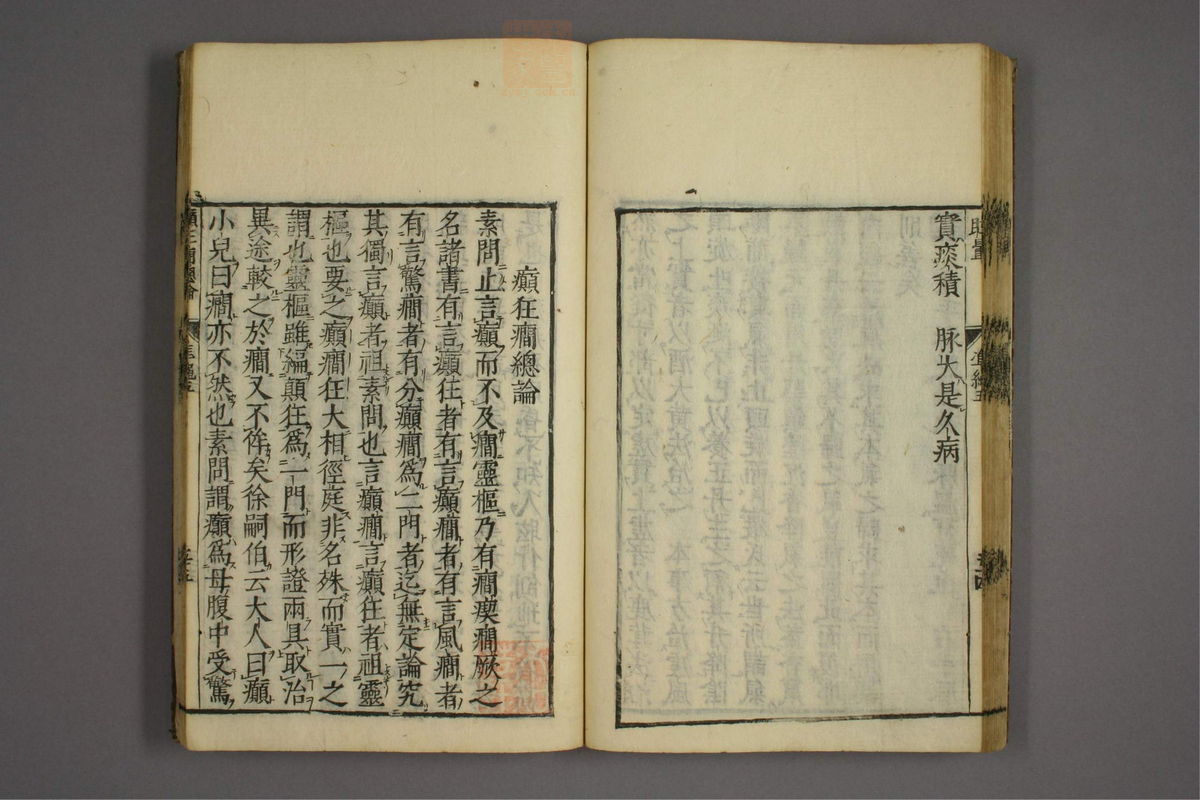 實痰積　脉大是久病
癲狂癇總論
素問止言癲而不及癇靈樞乃有癇瘈癇厥之
名諸書有言癲狂者有言癲癇者有言風癇者
有言驚癇者有分癲癇爲二門者迄無定論究
其獨言癲者祖素問也言癲癇言癲狂者祖靈
樞也要之癲癇狂大相徑庭非名殊而實一之
謂也靈樞雖編顛狂爲一門而形證兩具取治
異途較之於癇又不侔矣徐嗣伯云大人曰癲
小兒曰癇亦不然也素問謂癲爲母腹中受驚